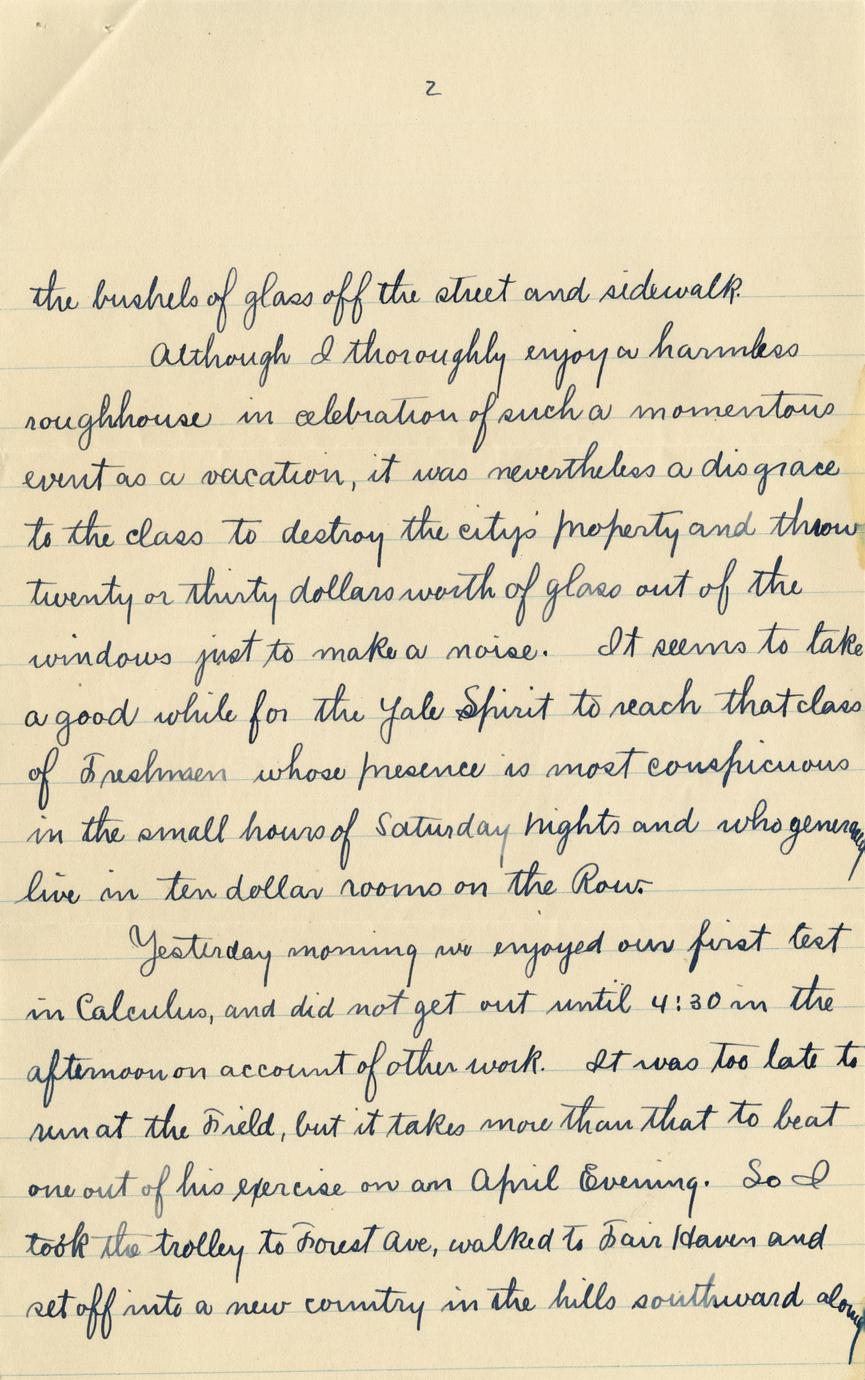 2
the bushels of glass off the street and sidewalk.
Although I thoroughly enjoy a harmless
roughhouse in celebration of such a momentous
event as a vacation, it was nevertheless a disgrace
to the class to destroy the city's property and throw
twenty or thirty dollars worth of glass out of the
windows just to make a noise. It seems to take
a good while for the Yale Spirit to reach that class
of Freshmen whose presence is most conspicuous
in the small hours of Saturday nights and who generally
live in ten dollar rooms on the Row.
Yesterday morning we enjoyed our first test
in Calculus, and did not get out until 4:30 in the
afternoon on account of other work. It was too late to
run at the Field, but it takes more than that to beat
one out of his exercise on an April Evening. So I
took the trolley to Forest Ave, walked to Fair Haven and
set off into a new country in the hills southward along